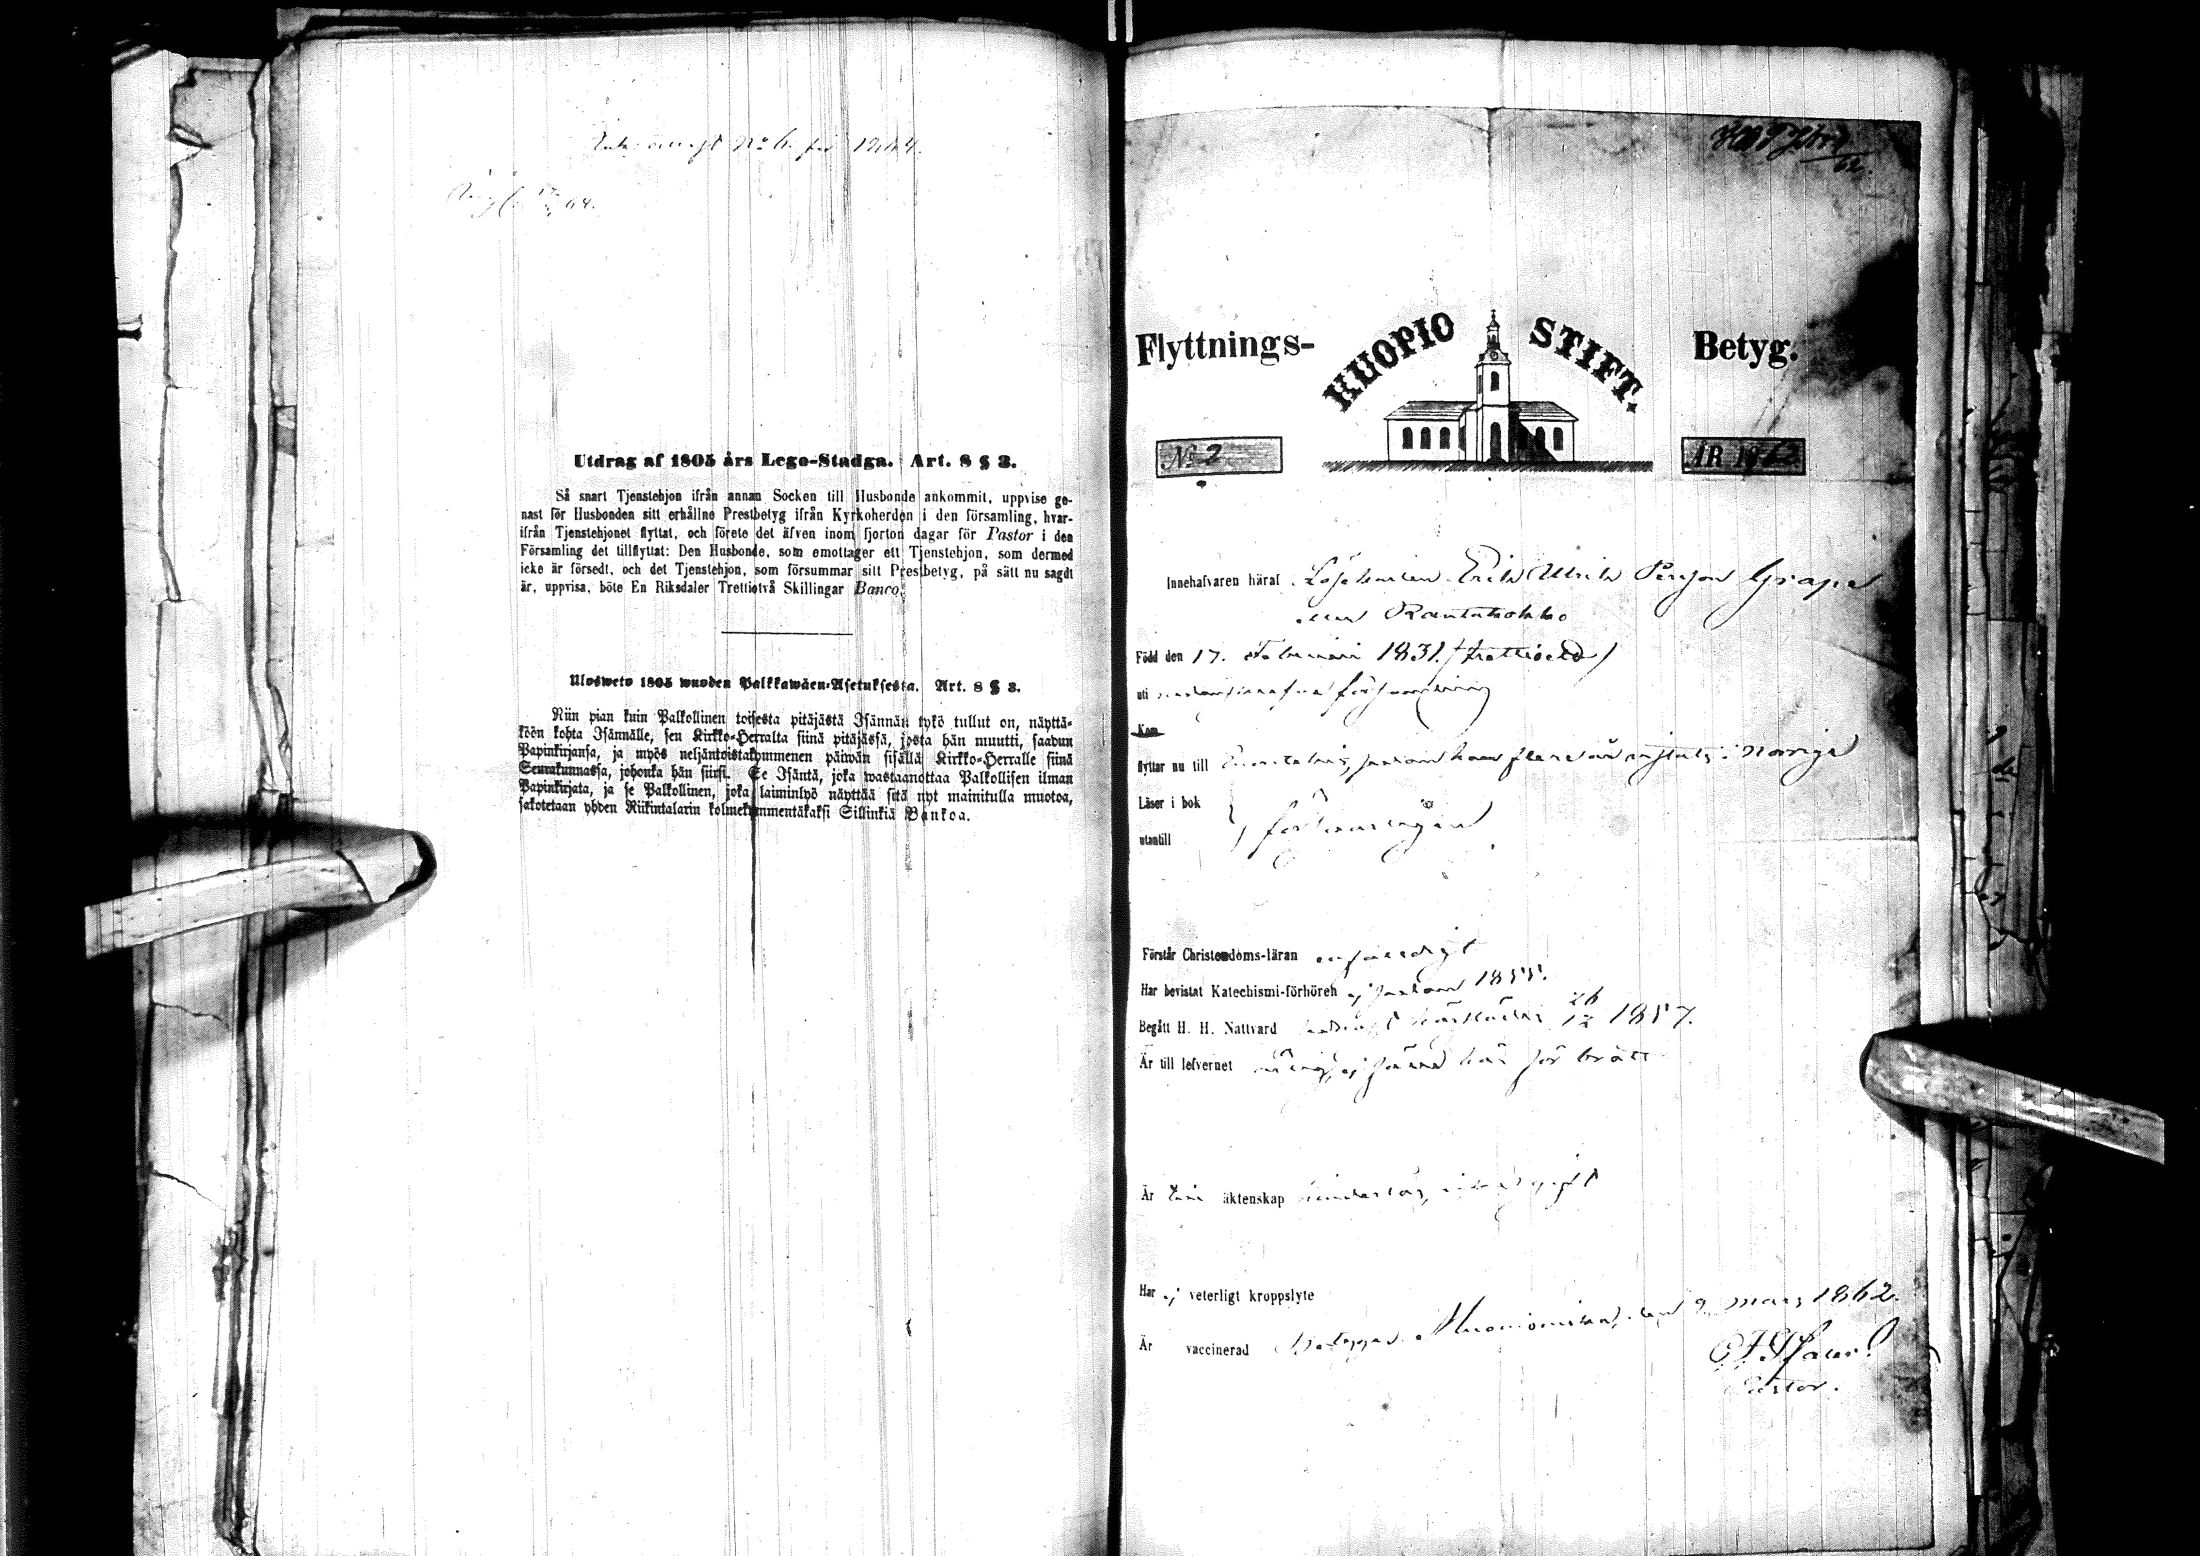 No 6 för 1864.
64.
Utdrag af 1805 års Lego-Stadga. Art. 8 § 3.
Så snart Tjenstehjon ifrån annan Socken till Husbonde ankommit, uppvise ge-
nast för Husbonden sitt erhållne Prestbetyg ifrån Kyrkoherden i den församling, hvar-
ifrån Tjenstehjonet flyttat, och förete det äfven inom fjorton dagar för Pastor i den
Församling det tillflyttat: Den Husbonde, som emottager ett Tjenstehjon, som dermed
icke är försedt, och det Tjenstehjon, som försummar sitt Prestbetyg, på sätt nu sagdt
är, uppvisa, böte En Riksdaler Trettiotvå Skillingar Banco.
Ulosweto 1805 wuoden Palkkawäen-Asetuksesta. Art. 8 § 3.
Niin pian kuin Palkollinen toisesta pitäjästä Isännän tykö tullut on, näyttä-
köön kohta Isännälle, sen Kirkko-Herralta siinä pitäjässä, josta hän muutti, saadun
Papinkirjansa, ja myös neljäntoistakymmenen päiwän sisällä Kirkko-Herralle siinä
Seurakunnassa, johonka hän siirsi. Se Isäntä, joka wastaanottaa Palkollisen ilman
Papinkirjata, ja se Palkollinen, joka laiminlyö näyttää sitä nyt mainitulla muotoa,
sakotetaan yhden Riikintalarin kolmekymmentäkaksi Sillinkiä Bankoa.
62.
Flyttnings- HUOPIO STIFT. Betyg.
No 2 ÅR 1862
Innehafvaren häraf Erik Ulrik Persson Grape
Rantakokko
Född den 17. Februari 1831. (trettioett)
uti församling
Kom
flyttar nu till sedan han flere år vistats i Norrige
Läser i bok
utantill försvarligen
Förstår Christendoms-läran enfaldigt
Har bevistat Katechismi-förhören ej sedan 1855.
Begått H. H. Nattvard härstädes 26/12 1857.
Är till lefvernet ej känd här för brott
Är till äktenskap hinderslös,
Har ej veterligt kroppslyte
Är vaccinerad Betygar Muonionniska, den 9 mars 1862.
Pastor.